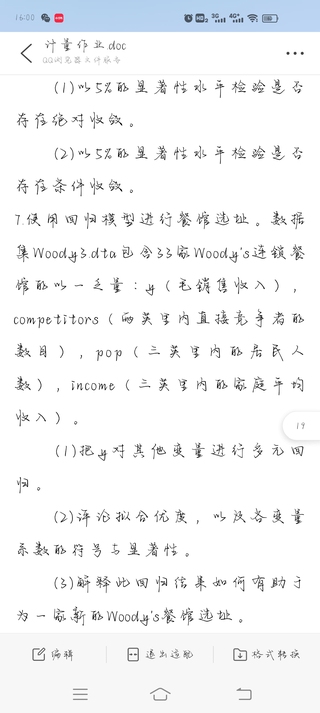 16:00
计量作业.doc
QQ浏览器文件服务
(1)以5%的显著性水平检验是否
存在绝对收敛。
(2)以5%的显著性水平检验是否
存在条件收敛。
7.使用回归模型进行餐馆选址。数据
集Woody3.dta包含33家Woody's连锁餐
馆的以一变量：y（毛销售收入），
competitors（两英里内直接竞争者的
数目），pop（三英里内的居民人
数），income（三英里内的家庭平均
收入）。
19
(1)把y对其他变量进行多元回
归。
(2)评论拟合优度，以及各变量
系数的符号与显著性。
(3)解释此回归结果如何有助于
为一家新的Woody's餐馆选址。
编辑
退出适配
格式转换